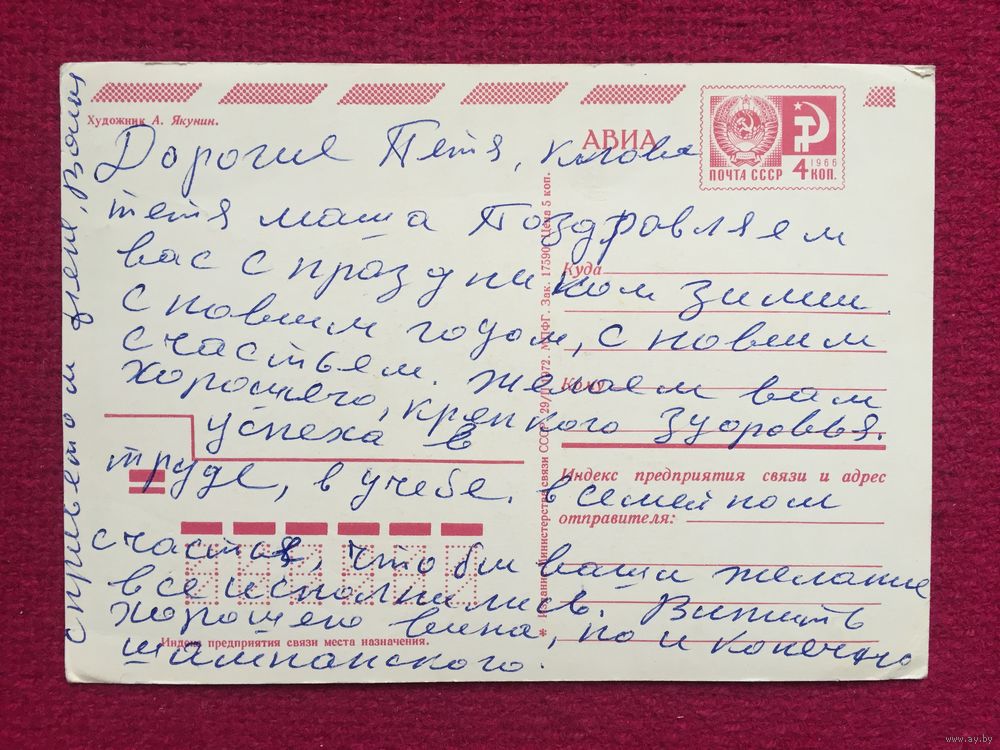 Художник А. Якунин.
АВИА
ПОЧТА СССР
4 КОП.
1966
Дорогие Петя, Клова
тетя маша Поздравляем
вас с праздником Зимы
с новым годом, с новым
счастьем. желаем вам
хорошего, крепкого здоровья.
успеха в
труде, в учебе. в семейном
счастья, что бы ваши желание
все исполнились. Выпить
хорошего вина, но и конечно
шампанского.
с приветом
Куда
Кому
Индекс предприятия связи и адрес
отправителя:
Издание Министерства связи СССР 29/II 1972. МПФГ. Зак. 17590. Цена 5 коп.
Индекс предприятия связи места назначения.
www.ay.by